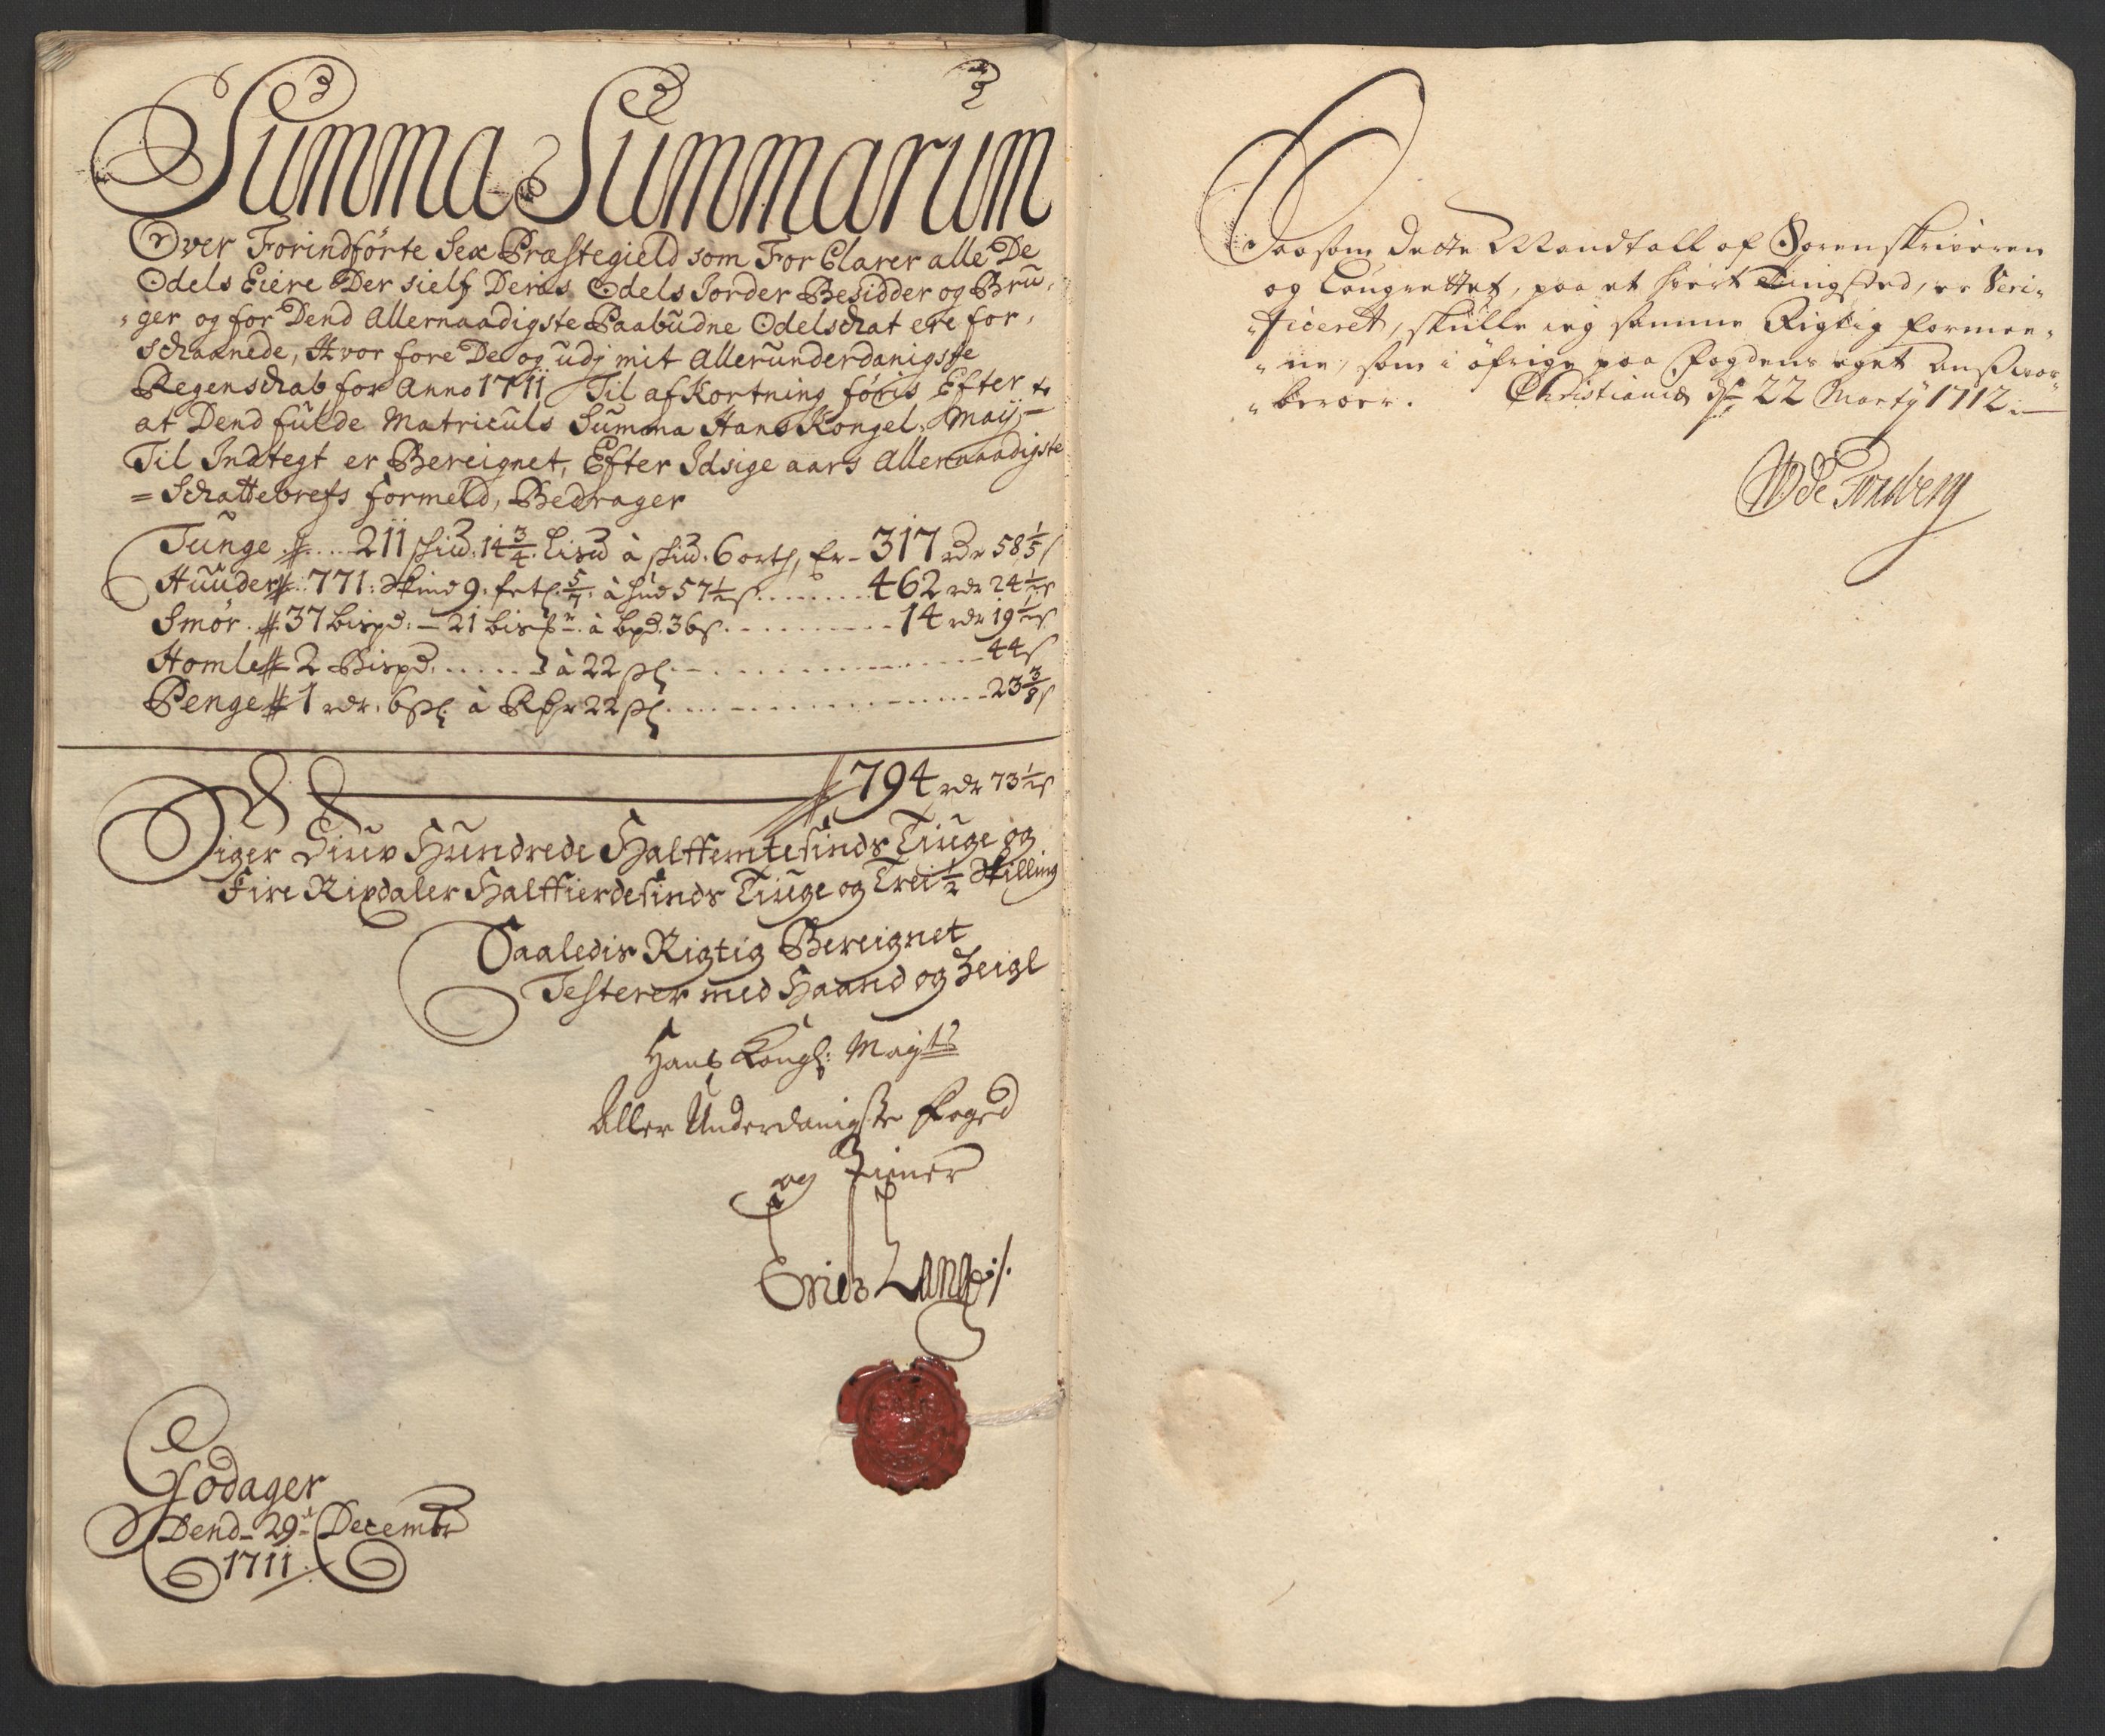 Summa Summarum
Over Forindførte Sex Præstegield som ForClarer alle De
Odels Eiere Der sielf Deris Odels Jorder Besidder og Bru-
-ger og for Dend Allernaadigste Paabudne Odelschat ere for-
schaanede, Hvor fore De og udj mit Allerunderdanigste
Regenschab for Anno 1711 Til afKortning føris Efter
at Dend fulde Matriculs Summa Hans Kongel. Maij:
Til Indtegt er Bereignet, Efter Idsige aars Allernaadigste
= Schattebrefs formeld, Bedrager
Tunge 211 skud: 14 3/4 Lisd à skud. 6 ort, Er - 317 rdr 58 1/5 s
Huuder 771: Skind 9: 5/7: à hud 57 1/2 s 462 rdr 24 1/2 s
Smør 37 bispd: - 21 à bpd. 36 s 14 rdr 19 1/2 s
Homle 2 Bispd. à 22 sl 44 s
Penge 1 rdr. 6 sl. à 22 sl 23 3/8 s
794 rdr 73 1/2 s
Siger Siuv Hundrede Halffemtesinds Tiuge og
Fire Rixdaler Halffierdesinds Tiuge og Trei 1/2 Skilling
Saaledis Rigtig Bereignet
Testerer med Haand og Zeigl
Hans Kongl: Mayts
Aller Underdanigste Foged
og Tiener
Erich Lang ./.
Godager
Dend 29 Decembr
1711
Saasom dette Mandtall af Sorenskriveren
og Laugrettet, paa et hvert Tingsted, er Veri-
-ficeret, skulle ieg samme Rigtig formee-
-ne, som i øfrige paa Fogdens eget Ansvar
beroer. Christiania d 22 Marty 1712